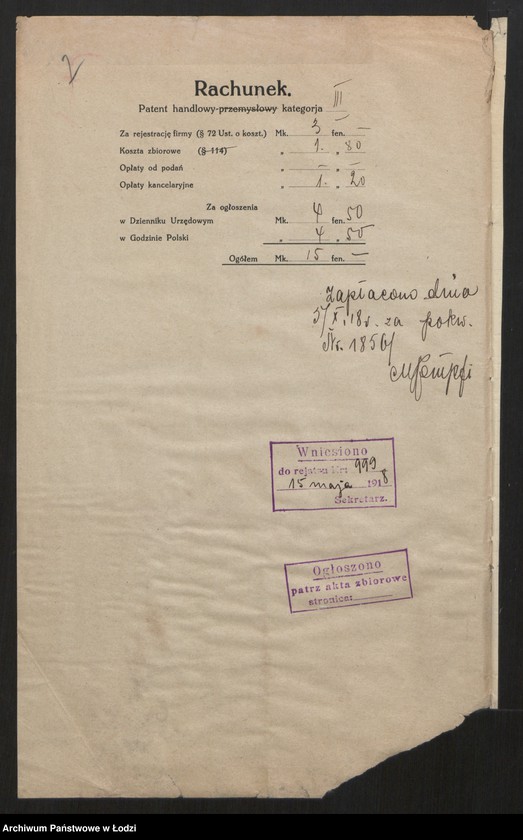 Rachunek.
Patent handlowy-przemysłowy kategorja III
Za rejestrację firmy (§ 72 Ust. o koszt.) Mk. 3 fen. —
Koszta zbiorowe (§ 114) „ 1. „ 80
Opłaty od podań „ — „ —
Opłaty kancelaryjne „ 1. „ 20
Za ogłoszenia
w Dzienniku Urzędowym Mk. 4 fen. 50
w Godzinie Polski „ 4 „ 50
Ogółem Mk. 15 fen. —
Zapłacono dnia
5/XI. 18 r. za pokw.
Nr. 1856/
Wniesiono
do rejestru Nr: 999
15 maja 1918
Sekretarz.
Ogłoszono
patrz akta zbiorowe
stronica:
Archiwum Państwowe w Łodzi